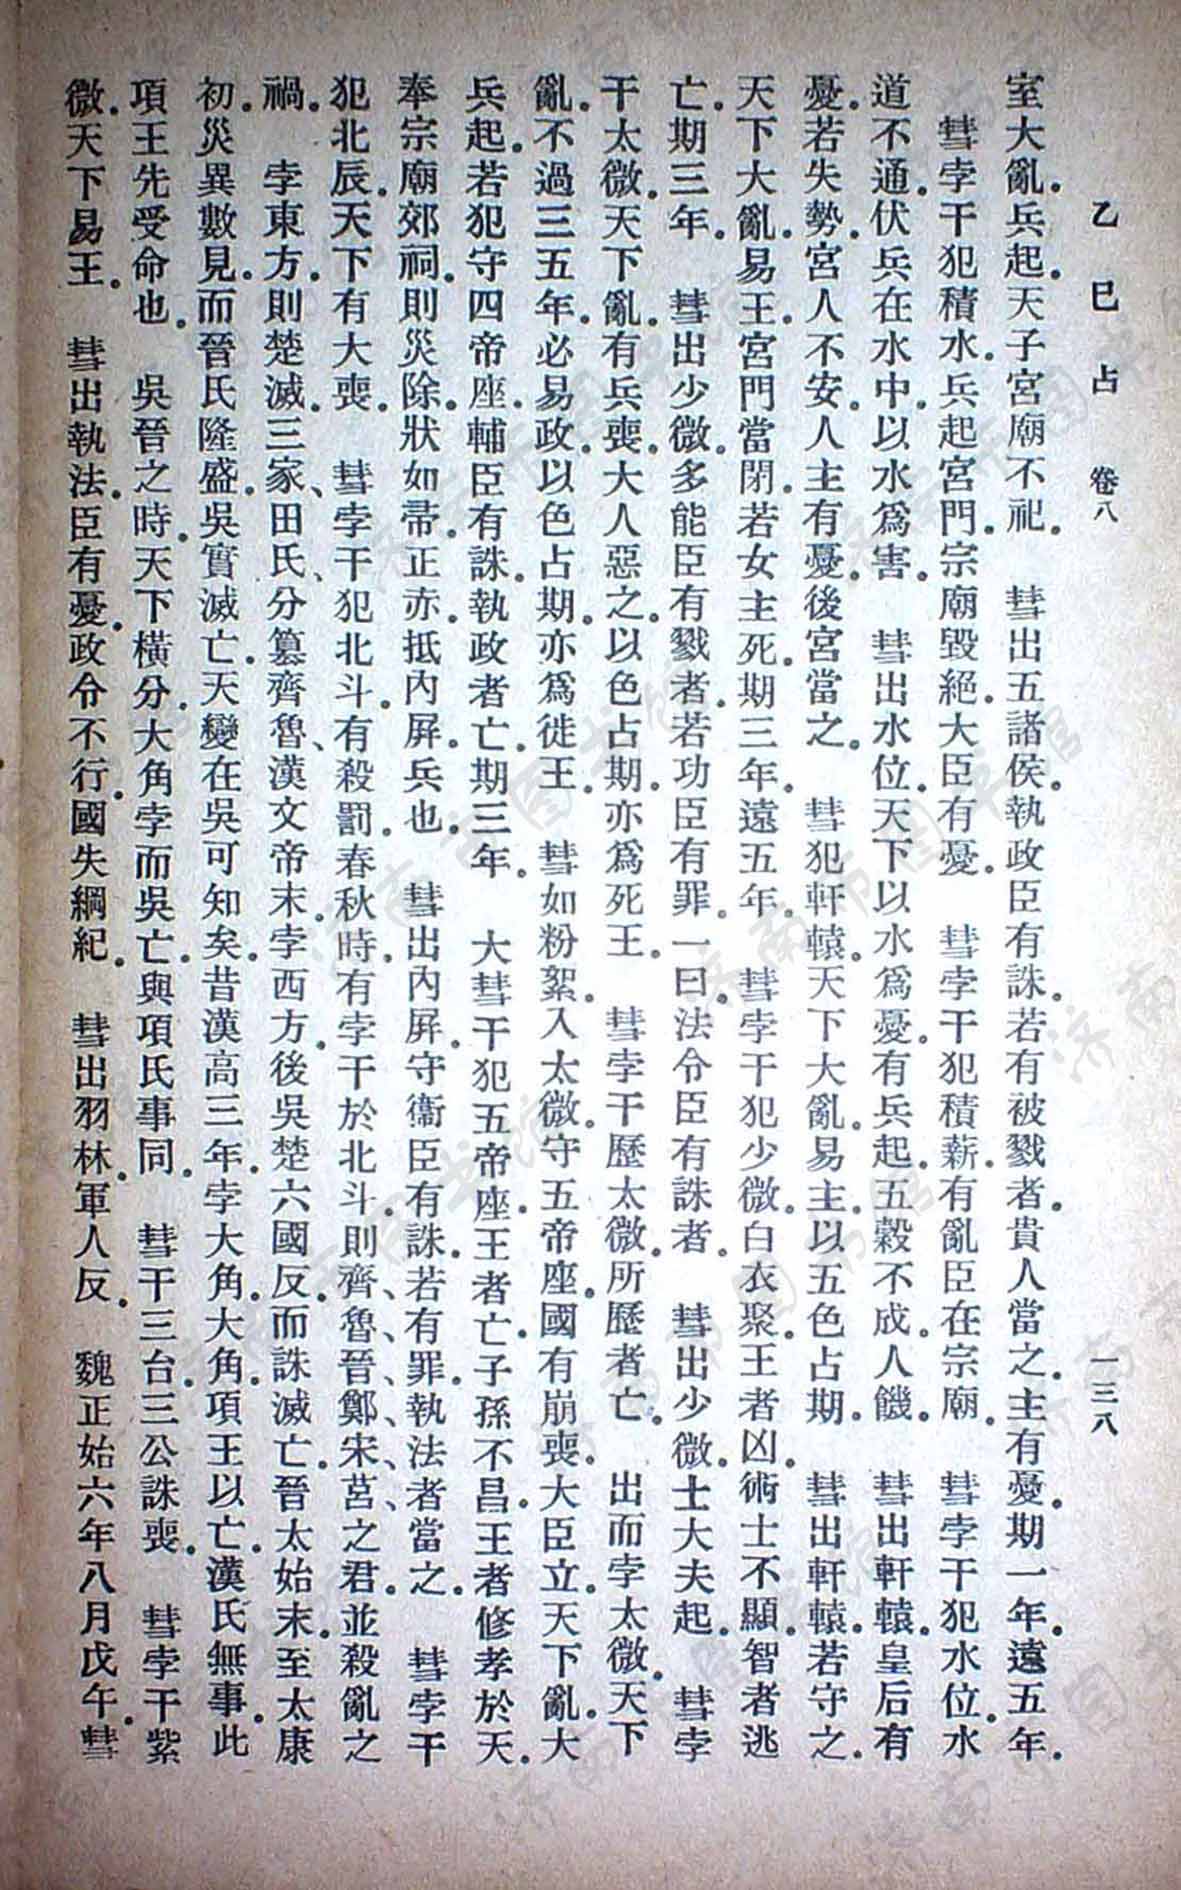 乙巳占 卷八 一三八
室大亂。兵起。天子宮廟不祀。 彗出五諸侯。執政臣有誅。若有被戮者。貴人當之。主有憂。期一年。遠五年。
彗孛干犯積水。兵起宮門。宗廟毀絕。大臣有憂。 彗孛干犯積薪。有亂臣在宗廟。 彗孛干犯水位。水
道不通。伏兵在水中。以水爲害。 彗出水位。天下以水爲憂。有兵起。五穀不成。人饑。 彗出軒轅。皇后有
憂。若失勢。宮人不安。人主有憂。後宮當之。 彗犯軒轅。天下大亂。易主。以五色占期。 彗出軒轅。若守之。
天下大亂。易王。宮門當閉。若女主死。期三年。遠五年。 彗孛干犯少微。白衣聚。王者凶。術士不顯。智者逃
亡。期三年。 彗出少微。多能臣有戮者。若功臣有罪。一曰。法令臣有誅者。 彗出少微。士大夫起。 彗孛
干太微。天下亂。有兵喪。大人惡之。以色占期。亦爲死王。 彗孛干歷太微。所歷者亡。 出而孛太微。天下
亂。不過三五年。必易政。以色占期。亦爲徙王。 彗如粉絮。入太微。守五帝座。國有崩喪。大臣立。天下亂。大
兵起。若犯守四帝座。輔臣有誅。執政者亡。期三年。 大彗干犯五帝座。王者亡。子孫不昌。王者修孝於天。
奉宗廟郊祠。則災除。狀如帚。正亦。抵內屏。兵也。 彗出內屏。守衞臣有誅。若有罪。執法者當之。 彗孛干
犯北辰。天下有大喪。 彗孛干犯北斗。有殺罰。春秋時。有孛干於北斗。則齊、魯、晉、鄭、宋、莒之君。並殺亂之
禍。 孛東方。則楚滅。三家、田氏、分篡齊魯、漢文帝末。孛西方。後吳楚六國反。而誅滅亡。晉太始末。至太康
初。災異數見。而晉氏隆盛。吳實滅亡。天變在吳可知矣。昔漢高三年。孛大角。大角。項王以亡。漢氏無事。此
項王先受命也。 吳晉之時。天下橫分。大角孛而吳亡。與項氏事同。 彗干三台。三公誅喪。 彗孛干紫
微。天下易王。 彗出執法。臣有憂。政令不行。國失綱紀。 彗出羽林。軍人反。 魏正始六年八月戊午。彗